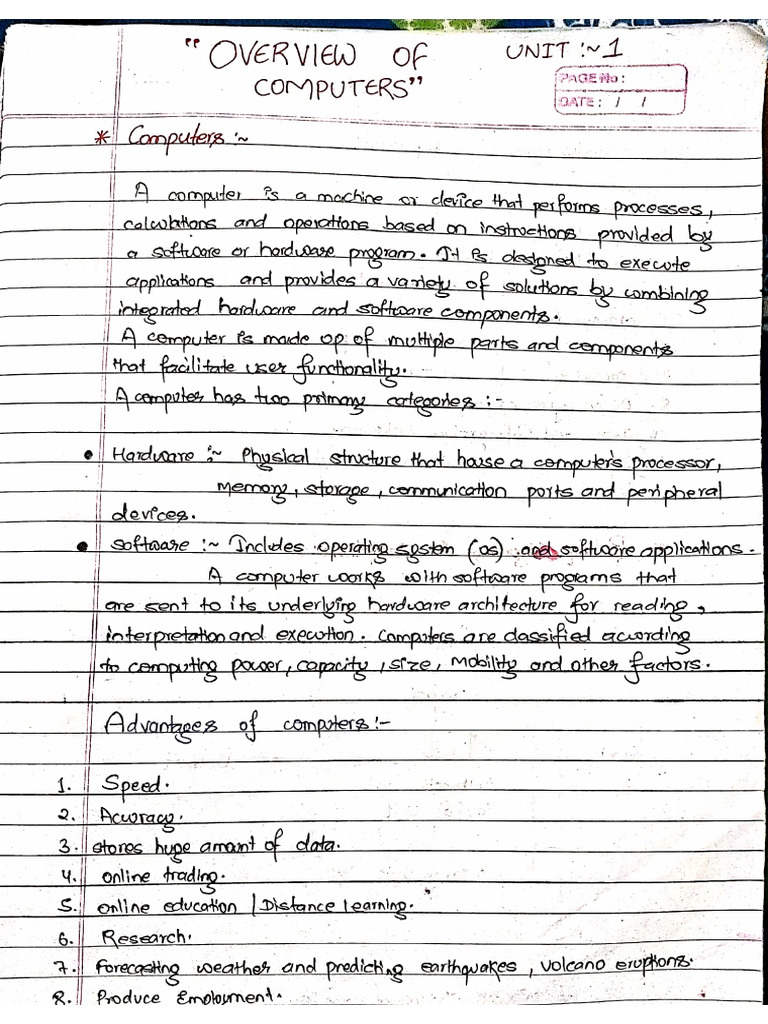 "OVERVIEW OF UNIT :~ 1
COMPUTERS"
PAGE No :
DATE : / /
* Computers :~
A computer is a machine or device that performs processes,
calculations and operations based on instructions provided by
a software or hardware program. It is designed to execute
applications and provides a variety of solutions by combining
integrated hardware and software components.
A computer is made op of multiple parts and components
that facilitate user functionality.
A computer has two primary categories :-
• Hardware :~ Physical structure that house a computer's processor,
memory, storage, communication ports and peripheral
devices.
• Software :~ Includes operating system (os) and software applications.
A computer works with software programs that
are sent to its underlying hardware architecture for reading,
interpretation and execution. Computers are classified according
to computing power, capacity, size, mobility and other factors.
Advantages of computers :-
1. Speed.
2. Accuracy.
3. stores huge amount of data.
4. online trading.
5. online education / Distance learning.
6. Research.
7. forecasting weather and predicting earthquakes, volcano eruptions.
8. Produce Emploument.